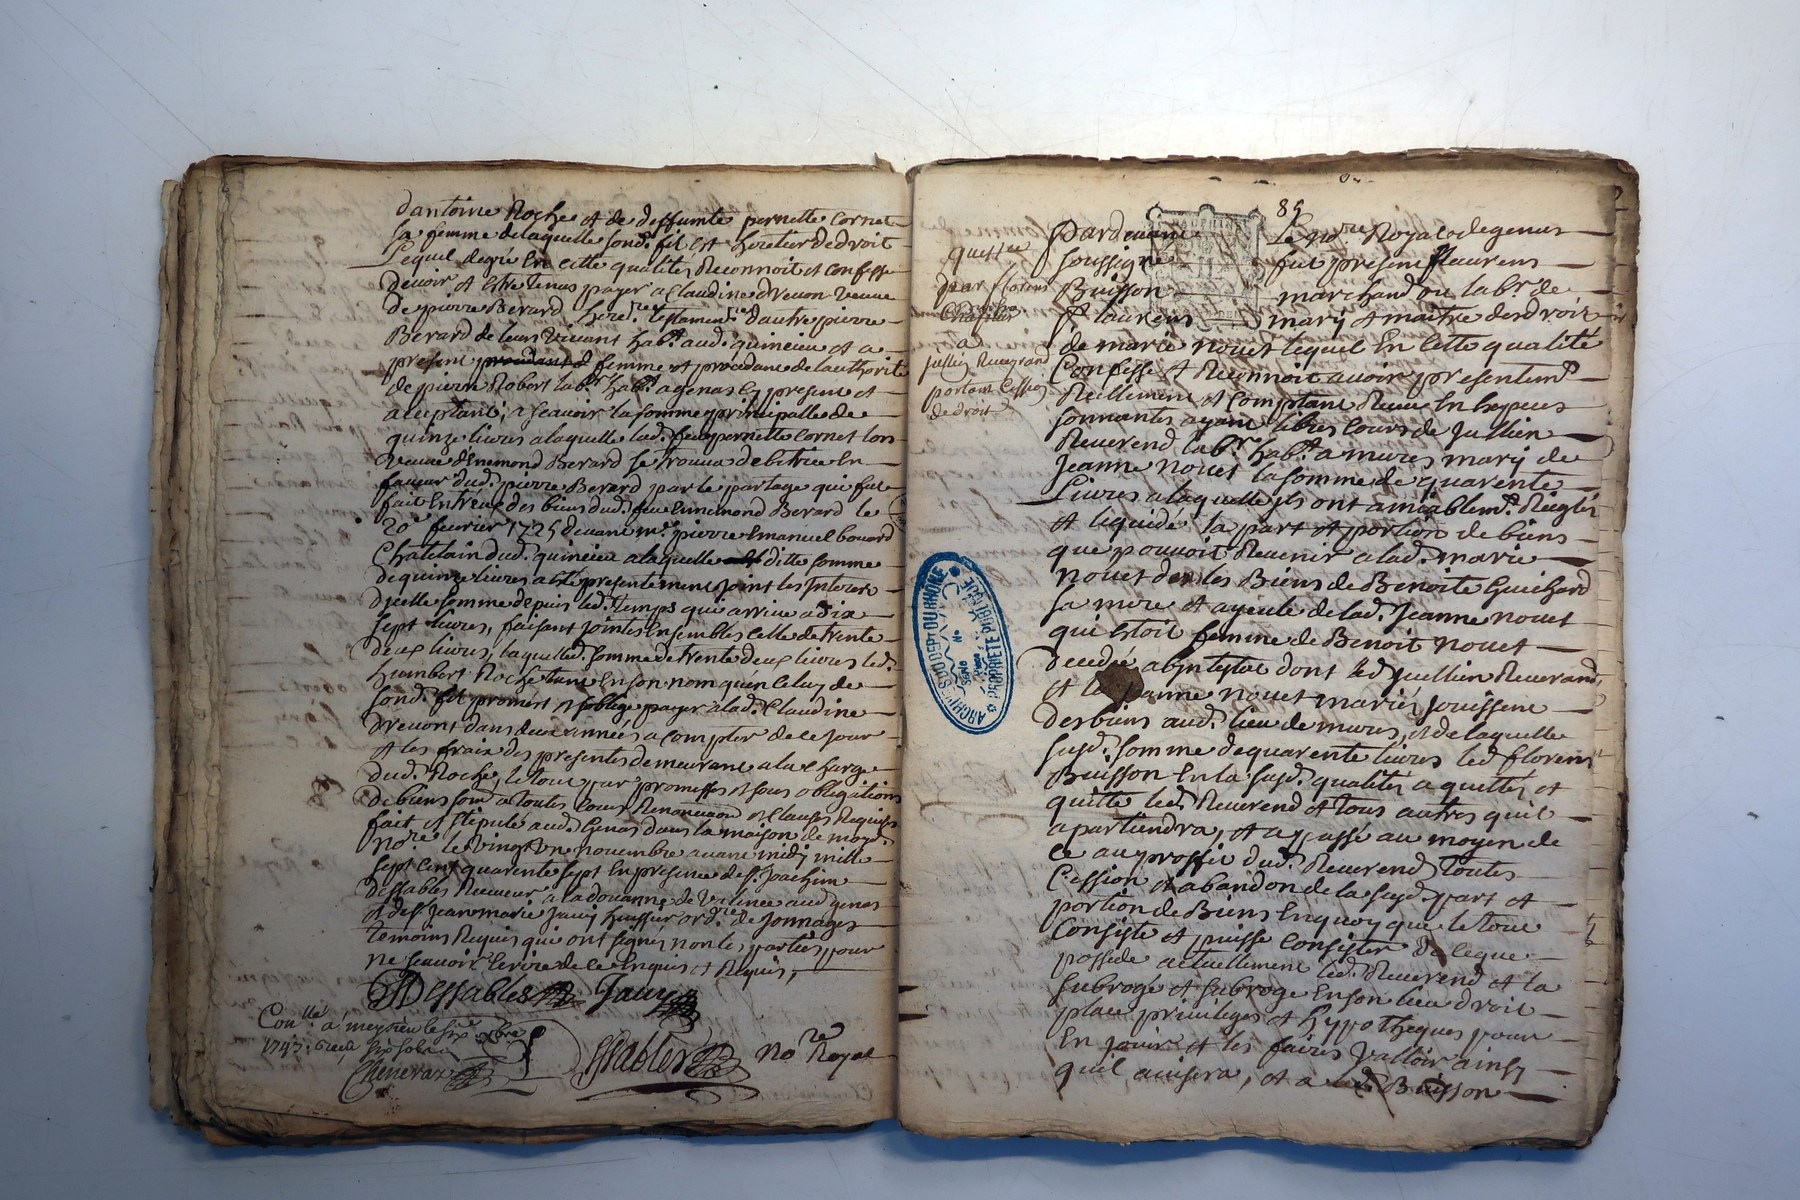 dantoine Roche et de deffunte pernette Cornet
sa femme delaquelle sond. fil est heritier de droit
Lequel degre En cette qualités Reconnoit et confesse
devoir et Estre tenus payer a Claudine drevon veuve
de pierre Berard here.re testament.re dautre pierre
Berard de leurs vivant hab.t aud. quincieu et a
present femme et procedant de lauthorité
de pierre Robert lab.r hab.t a genas Cy present et
aceptant, a scavoir la somme principalle de
quinze livres a laquelle lad. feu pernette Cornet lors
veuve dEnemond Berard se trouva debitrice En
faveur dud. pierre Berard par le partage qui fut
fait Entréux des biens dud. feu Ennemond Berard le
20e fevrier 1725 devant m.e pierre Emanuel bouvard
Chatelain dud. quincieu a laquelle ditte somme
de quinze livres a été presentement joint les Interets
dicelle somme depuis led. temps qui arrive a dix
sept livres, faisant jointes Ensembles celle de trente
deux livres, laquelled. somme de trente deux livres led.
humbert Roche tant En son nom quen celuy de
sond. fil promet et soblige payer a lad. Claudine
drevont dans deux années a compter de ce jour
et les fraix des presentes demeurant a la charge
dud. Roche, le tout par promesses et sous obligations
de biens soud a toutes Cours Renonciaon et Clauses Requises
fait et stipulé aud. Genas dans la maison de moyd.
no.re le vingt un novembre avant midy mille
sept cent quarente sept En presence de s.r Joachim
dessables Receveur a la douanne de valence aud genas
et de s.r Jean marie Jauy huissier ord.re de Jonnages
temoins Requis qui ont signés non les parties pour
ne scavoir Ecrire de ce Enquis et Requis,
Dessables Jauy
Con.llé a meyzieu le six xbre
1747. Receu six sols
Cheneraz
Essables no.re Royal
85
quitt.ce
par florens
Buisson
a
Jullien Reverand
portant Cession
de droit
Pardevant Le no.re Royal de genas
soussigné fut présent flaurens
Buisson marchand ou lab.r de
S.t laurens mary et maitre des droit
de marie nouet lequel En cette qualité
Confesse et Reconnoit avoir presentem.t
Reellement et Comptant Receu En Especes
sonnantes ayant libres Cours de Jullien
Reverend lab.r hab.t a mures mary de
Jeanne nouet la somme de quarente
Livres a laquelle jls ont amiablem.t Reiglér
et liquidé la part et portion de biens
que pouvoit Revenir a lad. marie
nouet dans les Biens de Benoite Guichard
sa mere et ayeule de lad. Jeanne nouet
qui Estoit femme de Benoit nouet
decedée abintestat dont led Jullien Reverand
et Jeanne nouet mariés jouissent
des biens aud. lieu de mures, et de laquelle
susd. somme de quarente livres led florens
Buisson En la susd. qualités a quittés et
quitte led. Reverend et tous autres quil
apartiendra, et a passé au moyen de
ce au proffit dud. Reverend toutes
Cession et abandon de la susd. part et
portion de Biens En quoy que le tout
Consiste et puisse Consister De ceque
possede actuellement led. Reverend et la
subroge et subroge En son lieu droit
place privileges et hypotheques pour
En jouir et les faires valloir ainsy
quil avisera, et a led. Buisson
ARCHIVES DU DEPT DU RHONE
PROPRIETE PUBLIQUE